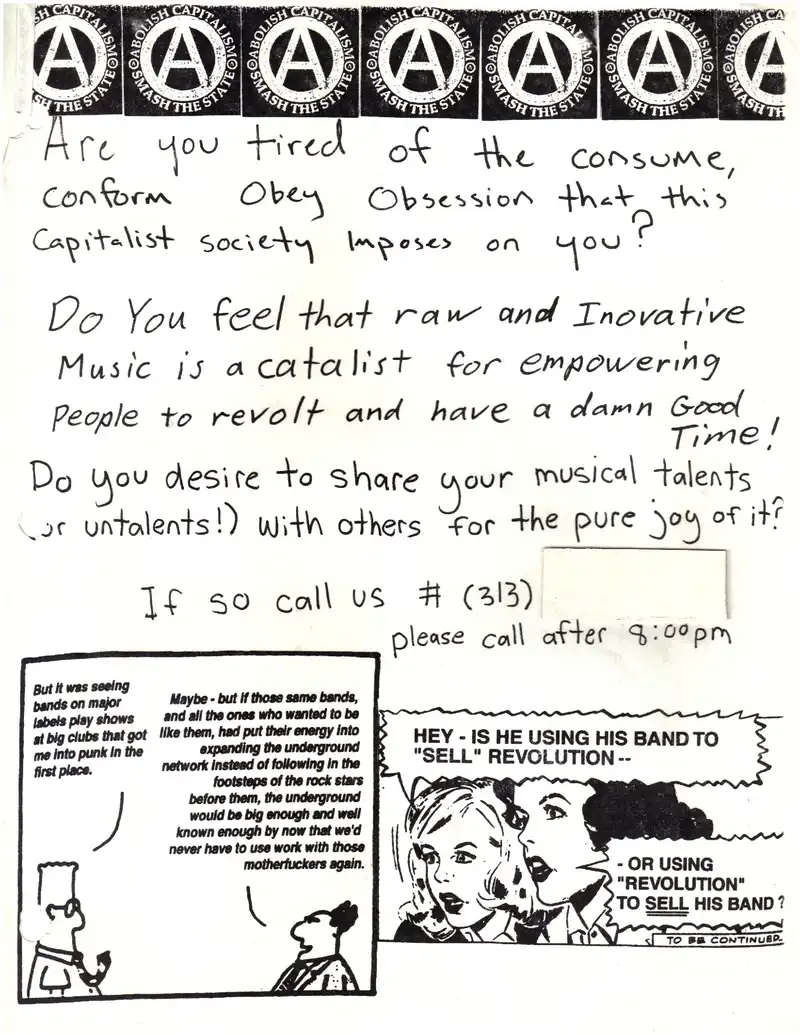 ABOLISH CAPITALISM
SMASH THE STATE
ABOLISH CAPITALISM
SMASH THE STATE
ABOLISH CAPITALISM
SMASH THE STATE
ABOLISH CAPITALISM
SMASH THE STATE
ABOLISH CAPITALISM
SMASH THE STATE
ABOLISH CAPITALISM
SMASH THE STATE
ABOLISH CA
SMASH THE
Are you tired of the consume,
conform Obey Obsession that this
Capitalist society Imposes on you?
Do You feel that raw and Inovative
Music is a catalist for empowering
People to revolt and have a damn Good
Time!
Do you desire to share your musical talents
(or untalents!) with others for the pure joy of it?
If so call us # (313)
please call after 8:00pm
But it was seeing
bands on major
labels play shows
at big clubs that got
me into punk in the
first place.
Maybe - but if those same bands,
and all the ones who wanted to be
like them, had put their energy into
expanding the underground
network instead of following in the
footsteps of the rock stars
before them, the underground
would be big enough and well
known enough by now that we'd
never have to use work with those
motherfuckers again.
HEY - IS HE USING HIS BAND TO
"SELL" REVOLUTION --
- OR USING
"REVOLUTION"
TO SELL HIS BAND?
TO BE CONTINUED